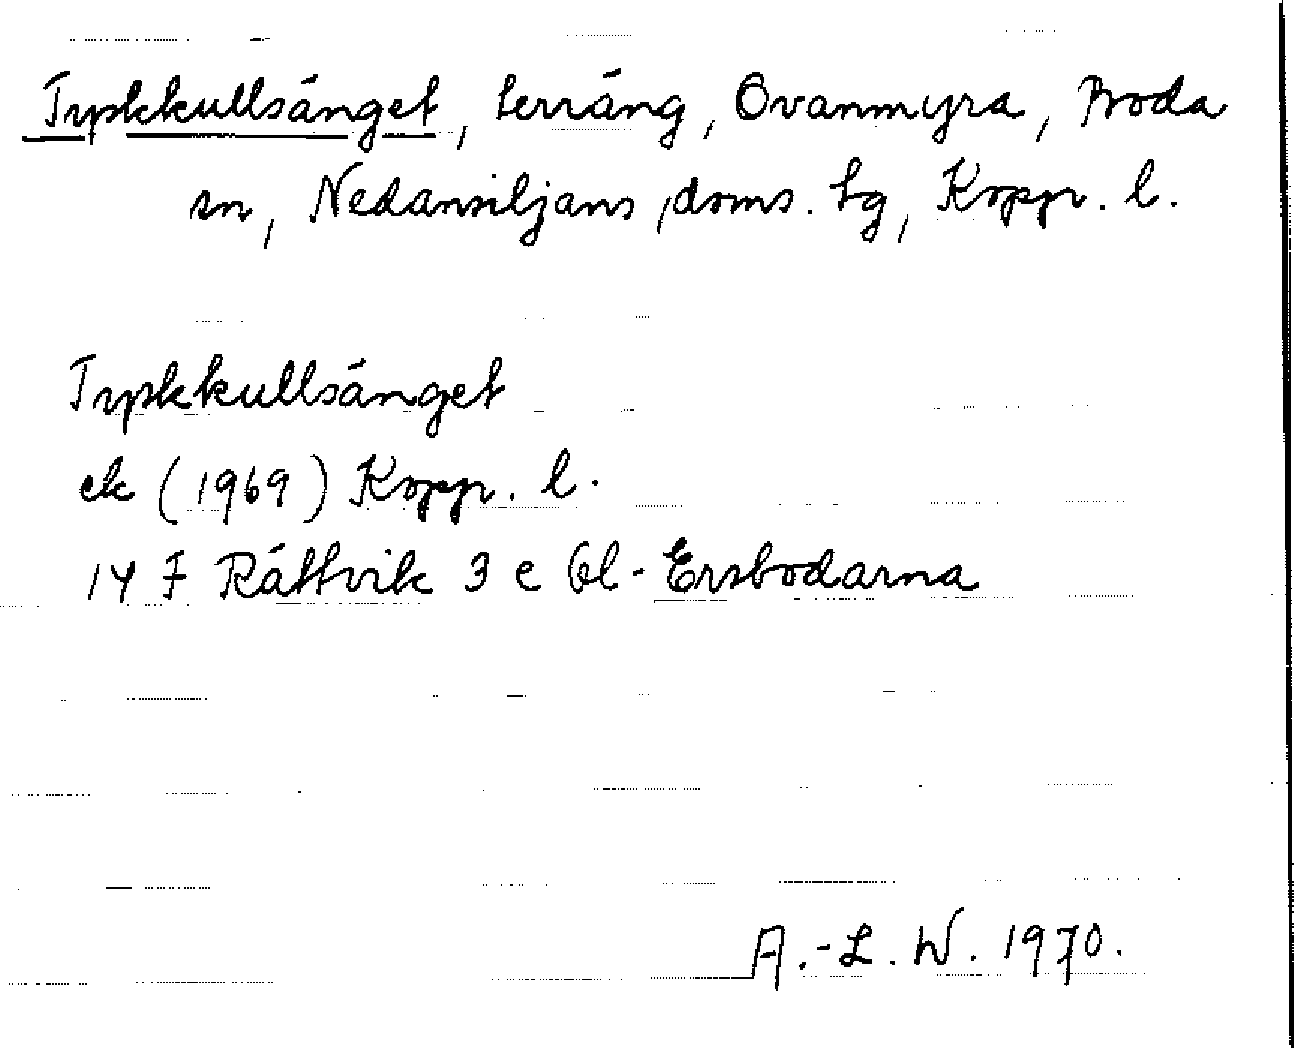 Tyskkullsänget, terräng, Ovanmyra, Boda
sn, Nedansiljans doms. hg, Kopp. l.
Tyskkullsänget
ek (1969) Kopp. l.
14 F Rättvik 3 e Gl-Ersbodarna
A.-L. W. 1970.